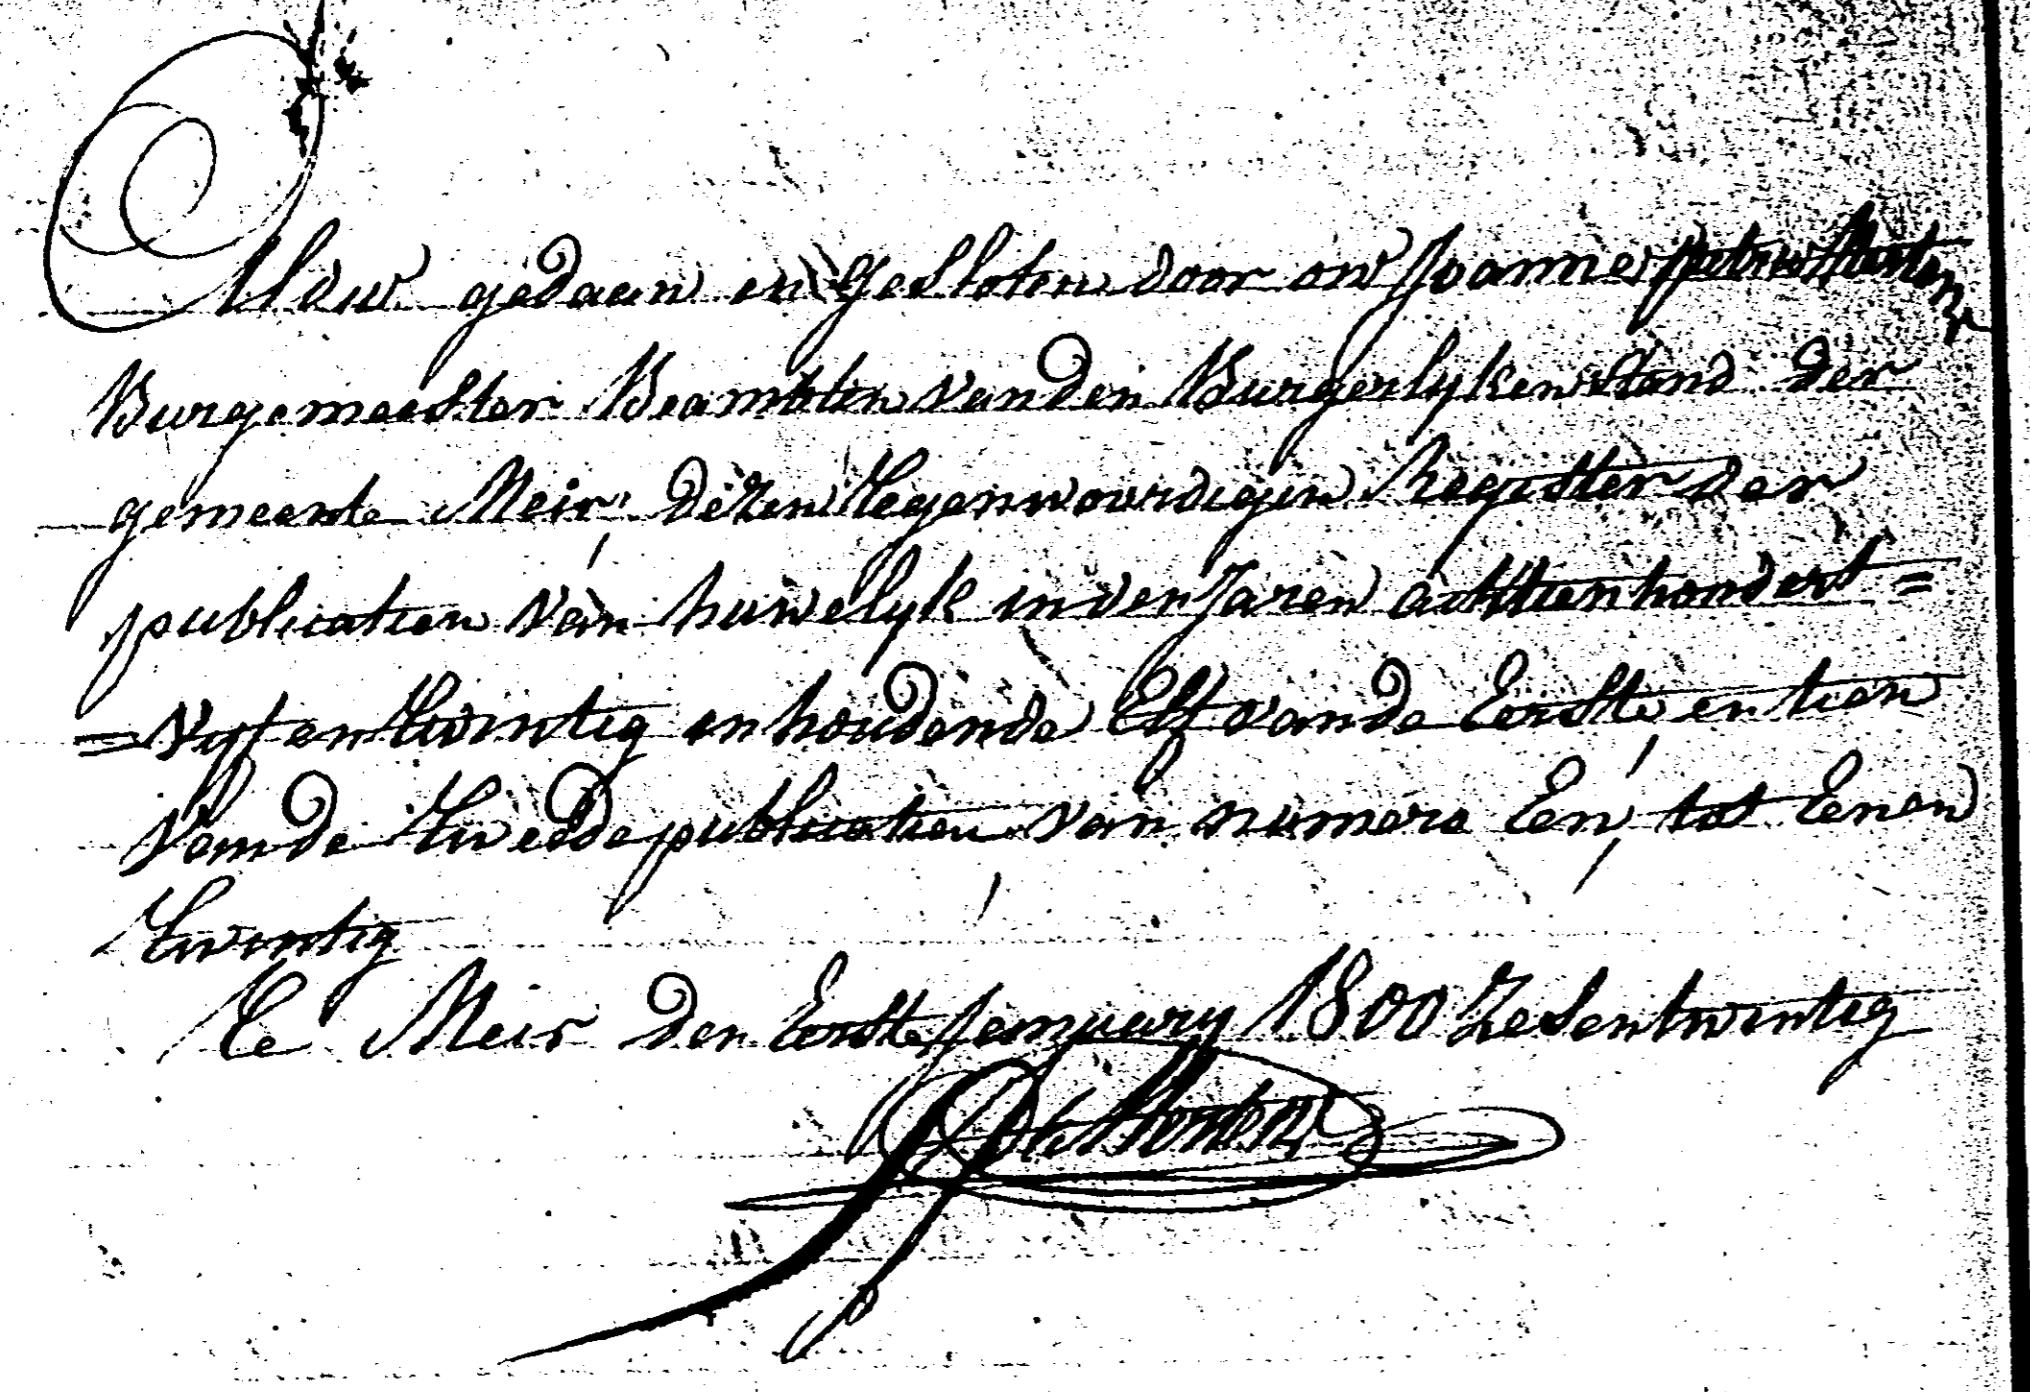 Aldus gedaen en gesloten door ons Joannes petrus
Burgemeester Beambten van den Burgerlyken stand der
gemeente Meir, dezen tegenwoordigen Register der
publicatien van huwelyk in den Jaren achttienhondert =
= vyf en twintig inhoudende Elf van de Eerste, en tien
van de tweede publicatien van numero Een, tot Eenen
twintig
Te Meir den Eerste January 1800 Zesentwintig